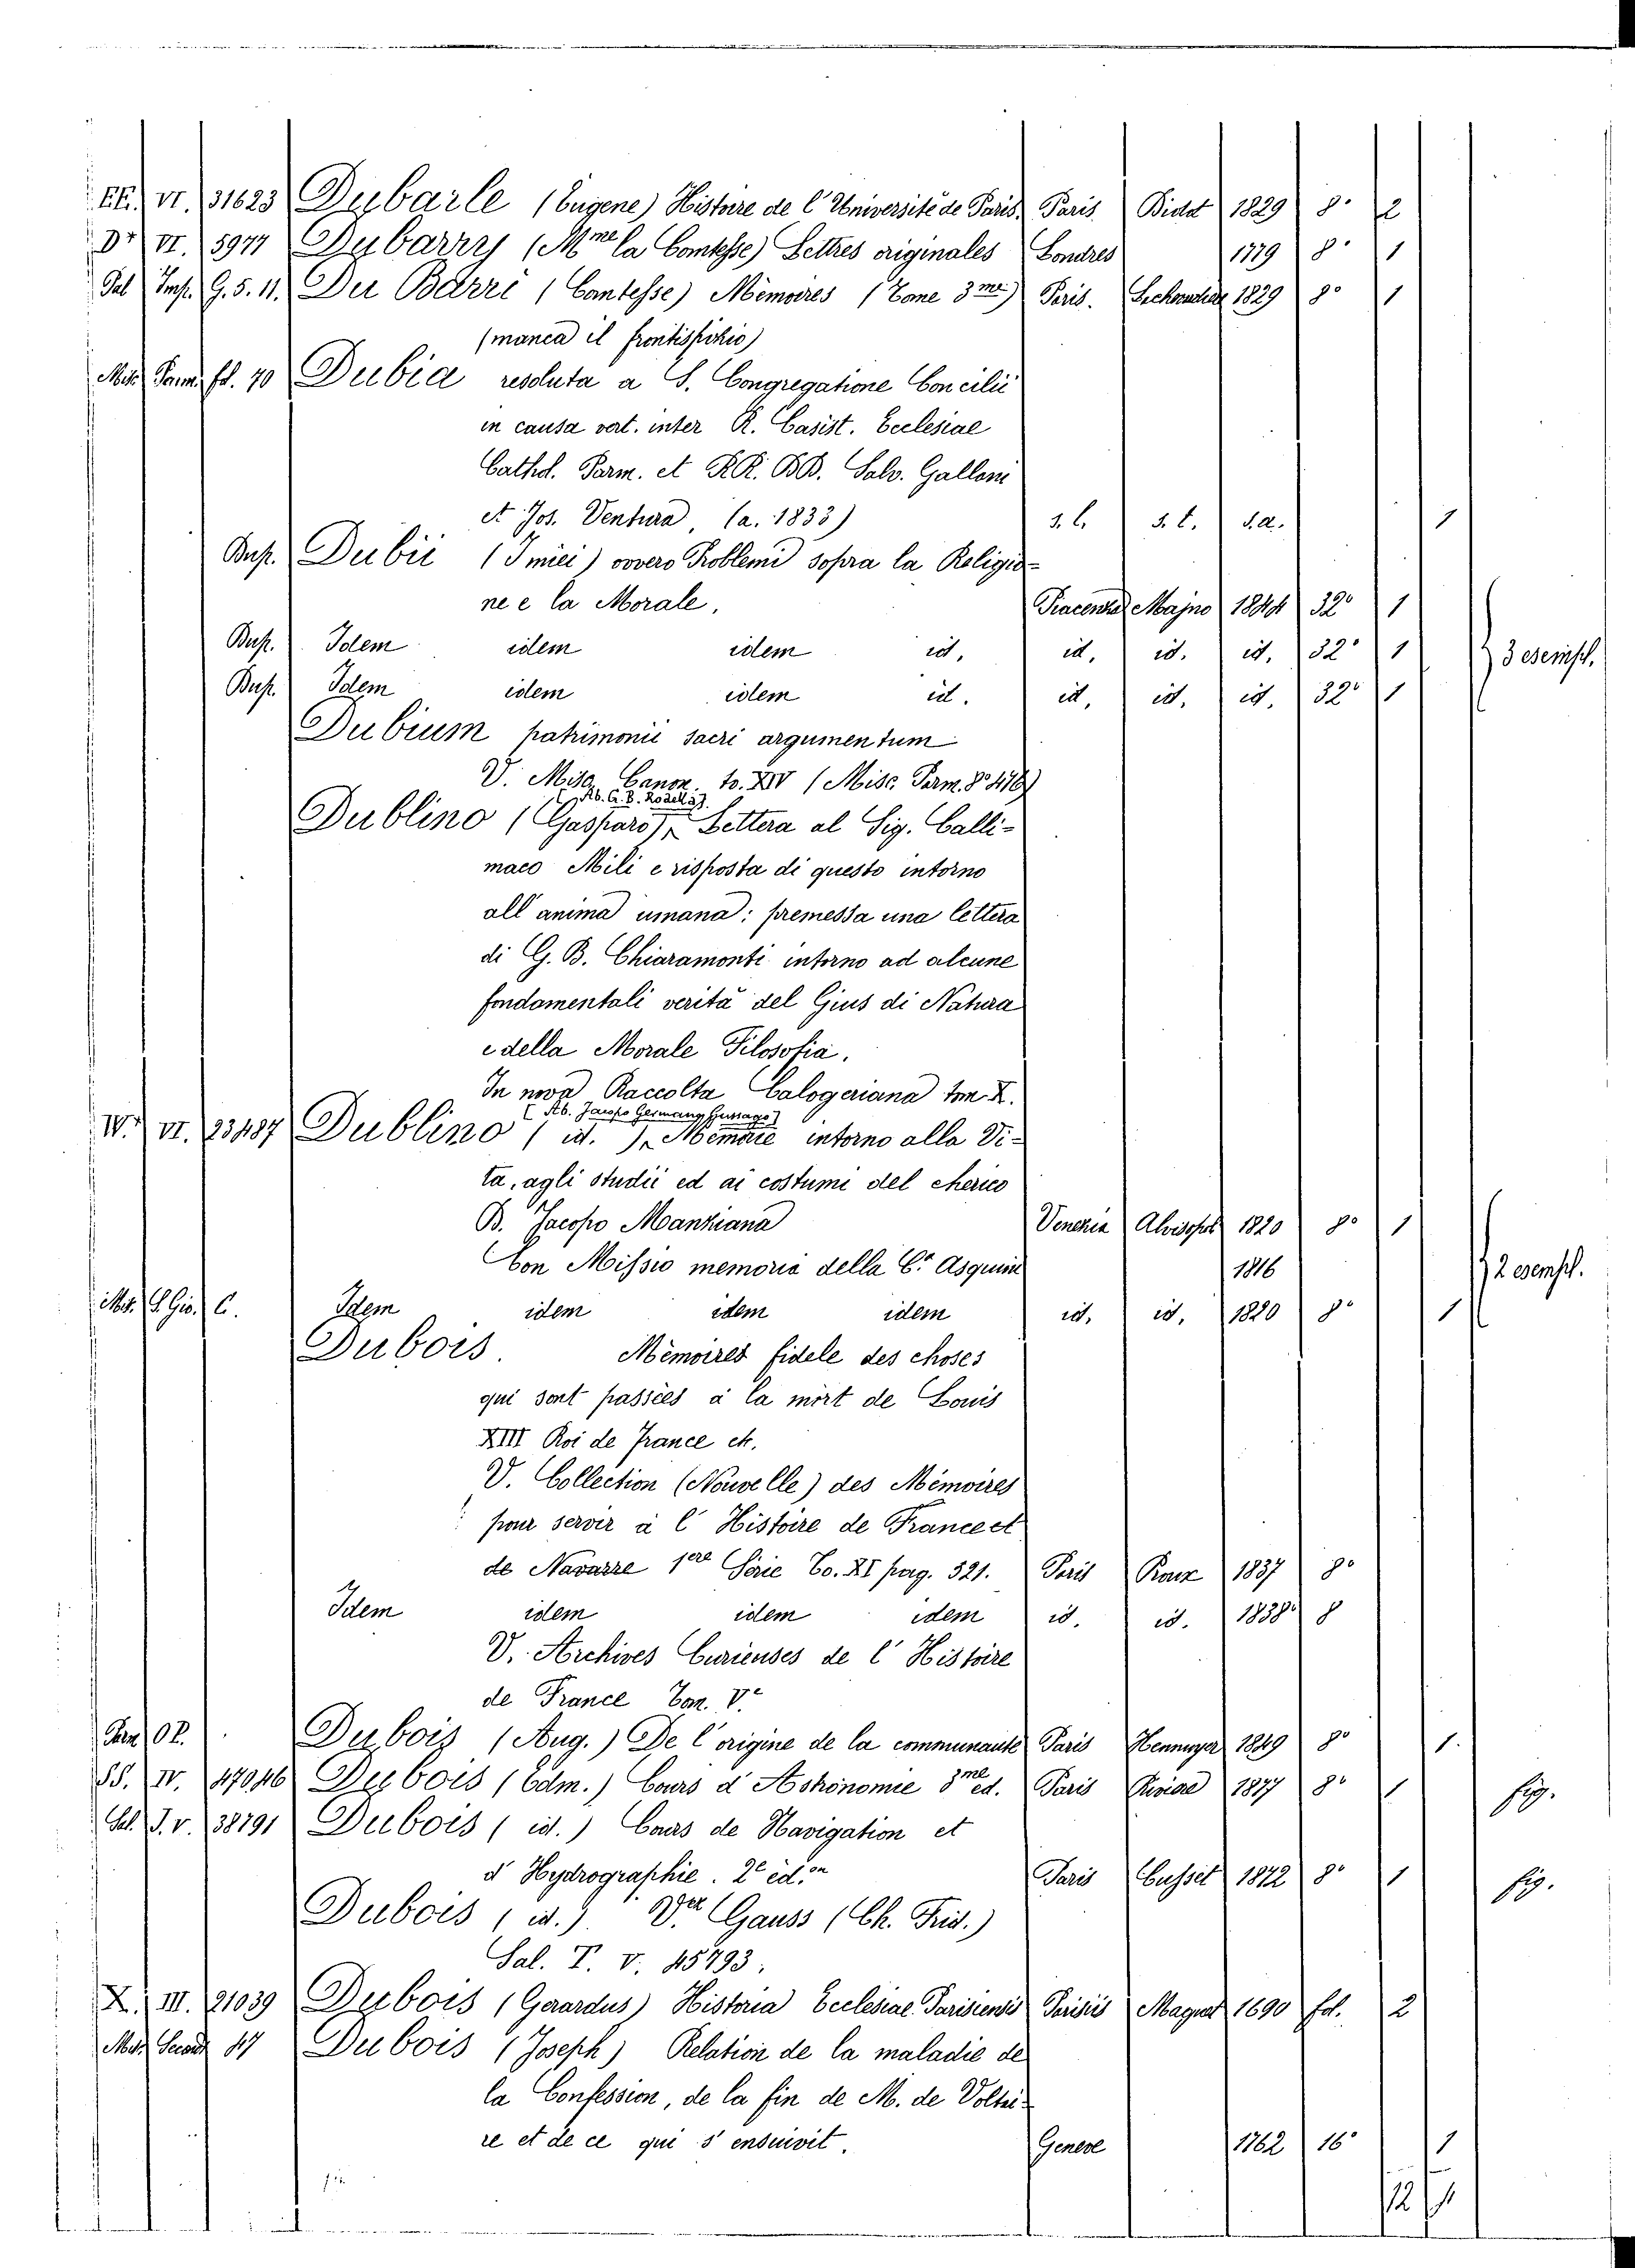 EE. VI. 31623 Dubarle (Eugene) Histoire de l'Université de Paris. Paris. Didot 1829 8° 2
Dr VI. 5977 Dubarry (Mme la Comtesse) Lettres originales Londres 1779 8° 1
Sal Imp. G. 5. 11. Du Barri (Comtesse) Mémoires (Tome 3me) Paris. 1829 8° 1
(manca il frontispizio)
Misc. Parm. fol. 70 Dubia resoluta a S. Congregatione Concilii
in causa vert. inter R. Casist. Ecclesiae
Cathed. Parm. et RR. BB. Salv. Galloni
et Jos. Ventura (a. 1833) s. l. s. t. s. a. 1
Busp. Dubii (I miei) ovvero Problemi sopra la Religio-
ne e la Morale. Piacenza Majno 1844 32° 1
Busp. Idem idem idem id. id. id. id. 32° 1 3 esempl.
Busp. Idem idem idem id. id. id. id. 32° 1
Dubium patrimonii sacri argumentum
V. Misc. Canon. to. XIV (Misc. Parm. 8° 476)
[Ab. G. B. Rodella].
Dublino (Gasparo) Lettera al Sig. Calli-
maco Mili e risposta di questo intorno
all'anima umana: premessa una lettera
di G. B. Chiaramonti intorno ad alcune
fondamentali verità del Gius di Natura
e della Morale Filosofia.
In nova Raccolta Calogeriana tom. X.
[Ab. Jacopo Germano Gussago]
W. VI. 23487 Dublino (id.) Memorie intorno alla Vi-
ta, agli studii ed ai costumi del cherico
B. Jacopo Manziana Venezia Alvisopoli 1820 8° 1
Con Missio memoria della Ct Asquini 1816 2 esempl.
Misc. S. Gio. C. Idem idem idem idem id. id. 1820 8° 1
Dubois. Mémoires fidele des choses
qui sont passées à la mort de Louis
XIII Roi de France etc.
V. Collection (Nouvelle) des Mémoires
pour servir à l'Histoire de France et
de Navarre 1ere Série To. XI pag. 521. Paris Roux 1837 8°
Idem idem idem idem id. id. 1838 8
V. Archives Curieuses de l'Histoire
de France Tom. Ve
OP. Dubois (Aug.) De l'origine de la communauté Paris Hennuyer 1849 8° 1.
SS. IV. 47046 Dubois (Edm.) Cours d'Astronomie 3me ed. Paris 1877 8° 1 fig.
Sal. I. V. 38791 Dubois (id.) Cours de Navigation et
d'Hydrographie. 2e édion Paris Cusset 1872 8° 1 fig.
Dubois (id.) Ver Gauss (Ch. Frid.)
Sal. I. V. 45793.
X. III. 21039 Dubois (Gerardus) Historia Ecclesiae Parisiensis Parisiis 1690 fol. 2
Misc. 47 Dubois (Joseph) Relation de la maladie de
la Confession, de la fin de M. de Voltai-
re et de ce qui s'ensuivit. Geneve 1762 16° 1
12